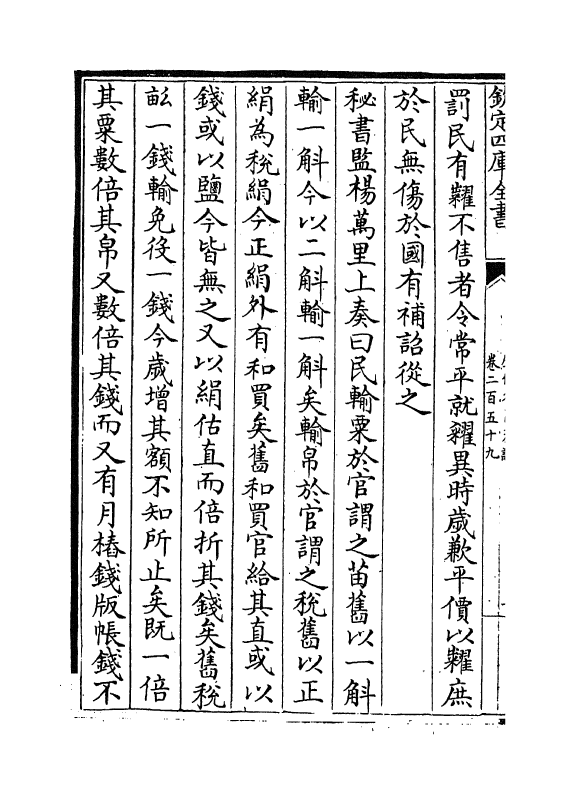 欽定四庫全書
卷二百五十九
罰民有糶不售者令常平就糴異時歲歉平價以糶庶
於民無傷於國有補詔從之
秘書監楊萬里上奏曰民輸粟於官謂之苗舊以一斛
輸一斛今以二斛輸一斛矣輸帛於官謂之稅舊以正
絹為稅絹今正絹外有和買矣舊和買官給其直或以
錢或以鹽今皆無之又以絹估直而倍折其錢矣舊稅
畝一錢輸免役一錢今歲增其額不知所止矣既一倍
其粟數倍其帛又數倍其錢而又有月樁錢版帳錢不